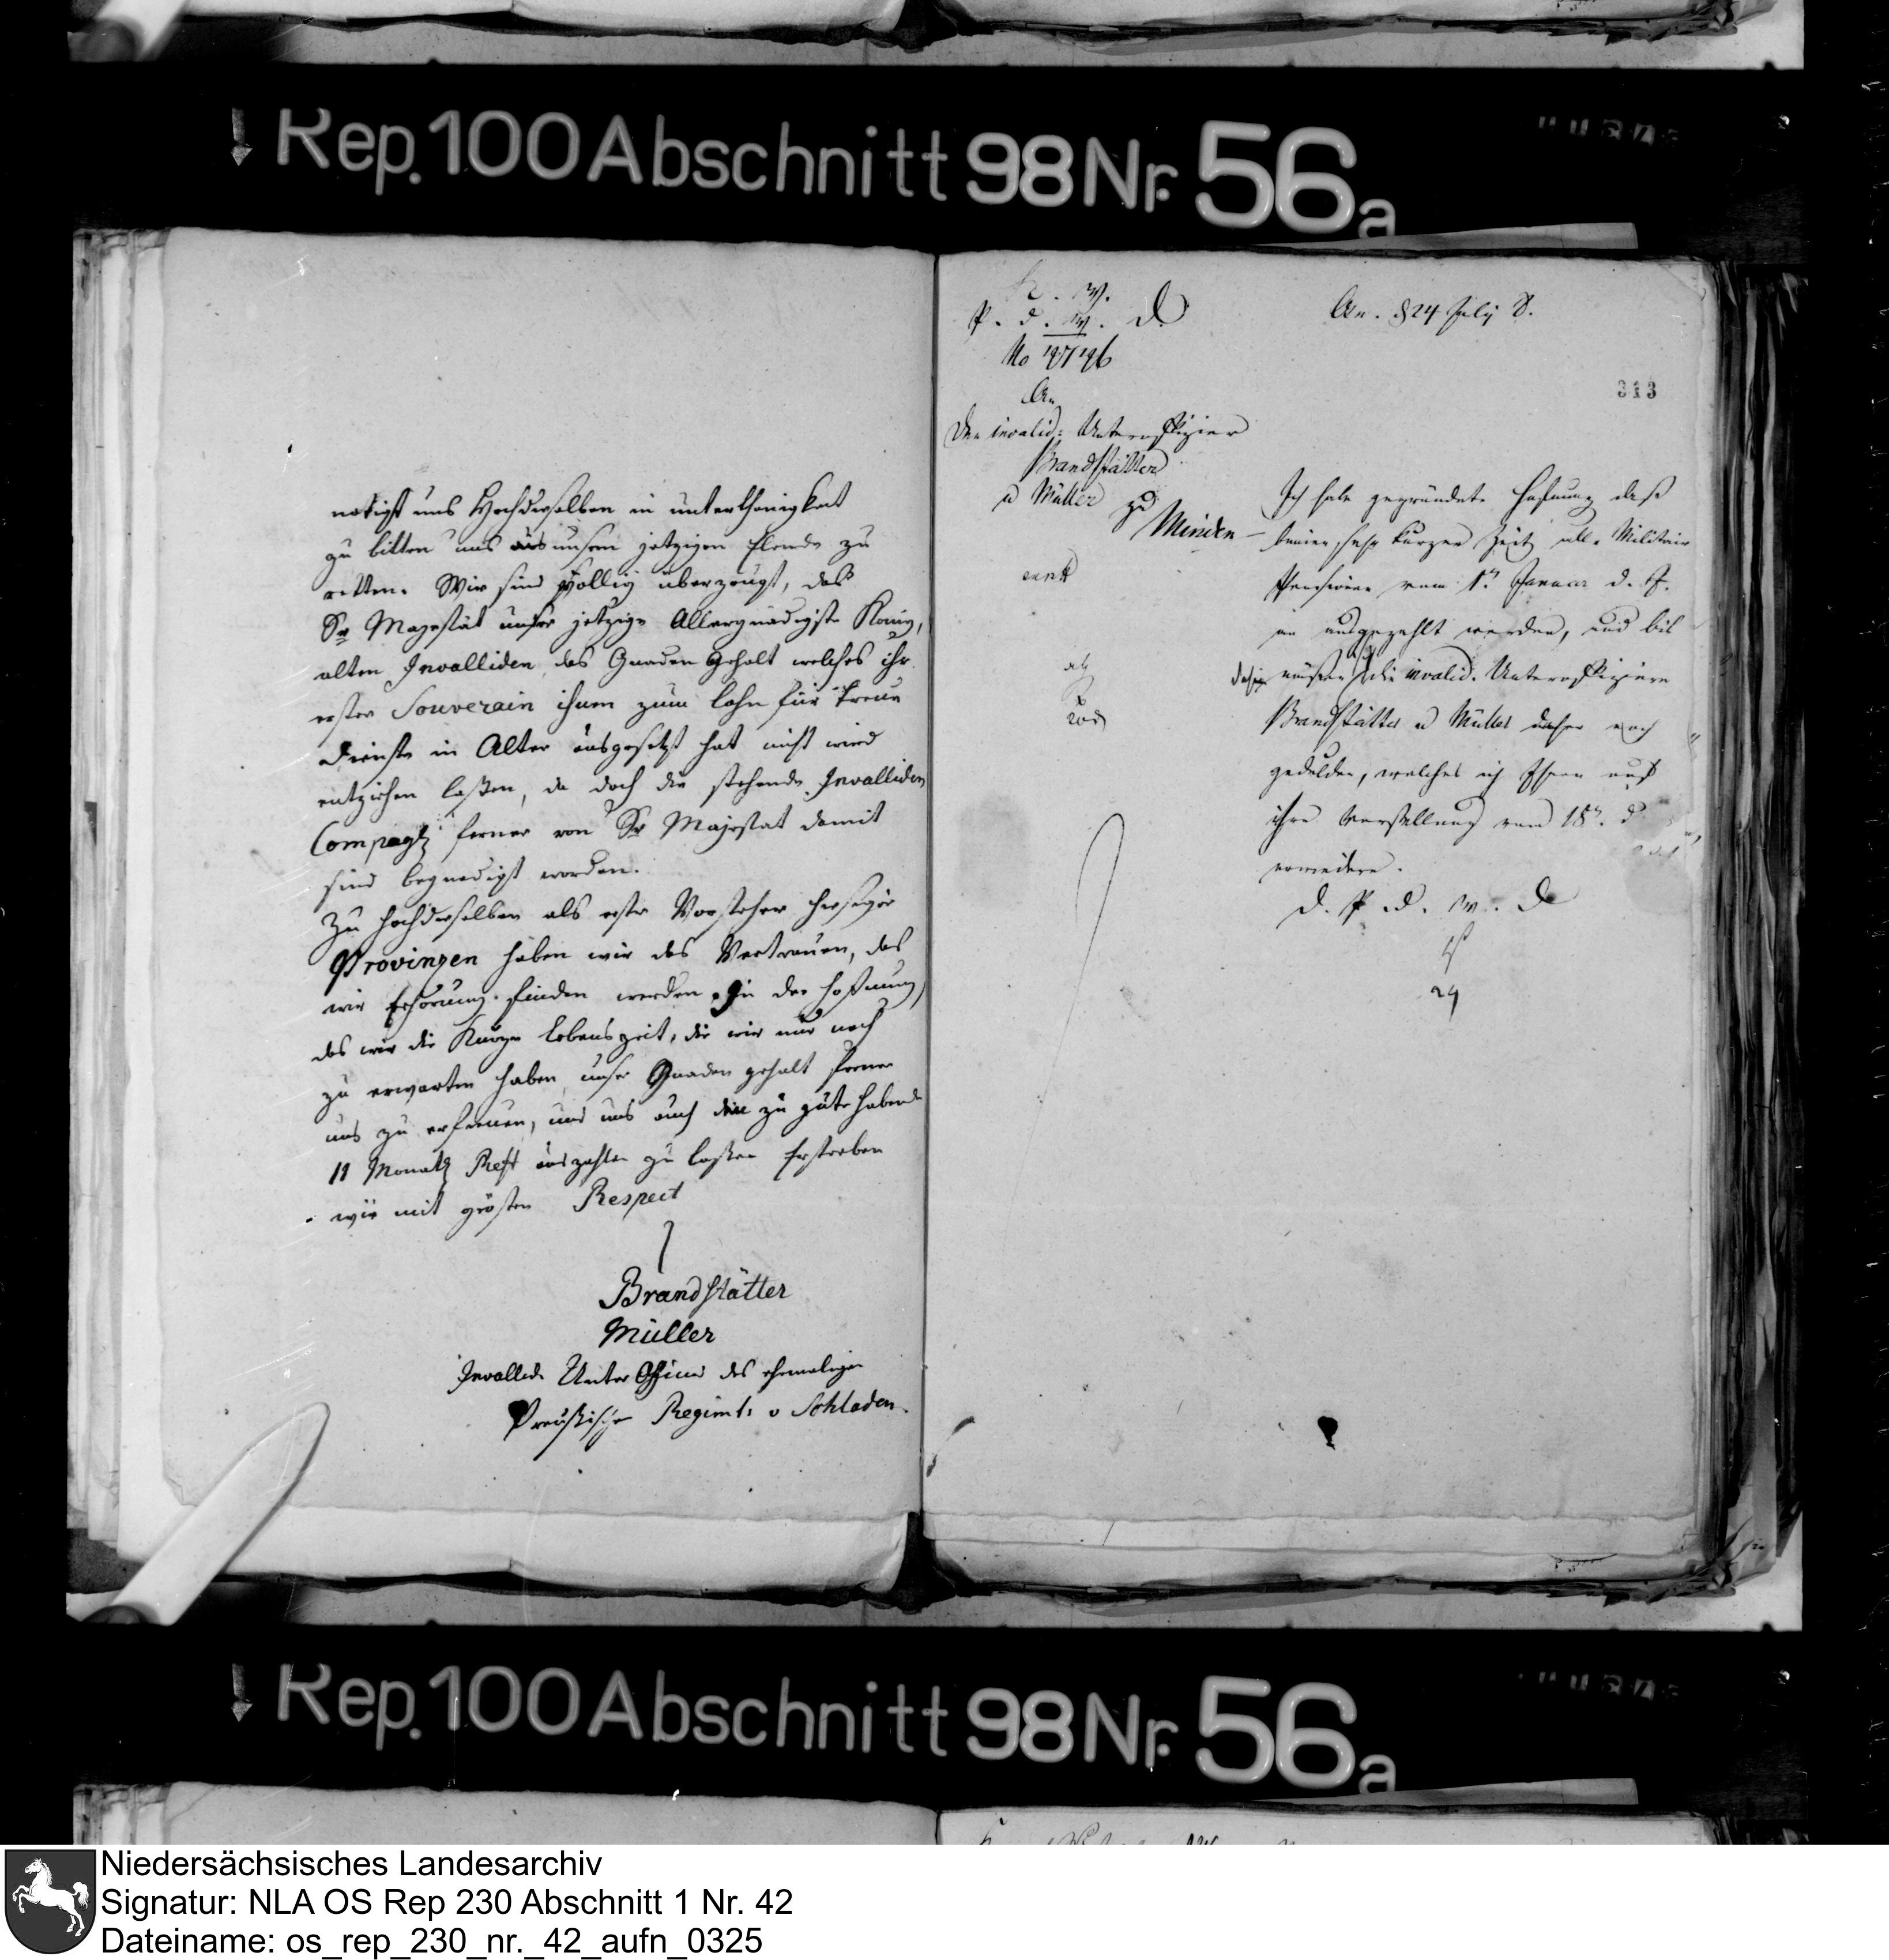 Rep. 100 Abschnitt 98 Nr. 56a
notigst uns Hochderselben in unterthänigkeit
zu bitten uns aus unsern jetzigen Elende zu
retten. Wir sind völlig überzeugt, das
Sr Majestät unser jetzige Allergnädigste König,
alten Invalliden das Gnaden Gehalt welches ihr
erster Souverain ihnen zum lohn für treue
Dienste in Alter ausgesetzt hat nicht wird
entziehen laßen, da doch die stehende Invalliden
Compagn ferner von Sr Majestat damit
sind begnadigt worden.
Zu Hochderselben als erster Vorsteher hiesiger
Provinzen haben wir das Vertrauen, das
wir Erhörung finden werden. In der Hoffnung,
das wir die Kurze lebenszeit, die wir nur noch
zu erwarten haben, unser Gnaden gehalt ferner
uns zu erfreuen, und uns auch die zu gute habende
11 Monath Rest auszahlen zu laßen Ersterben
wir mit grösten Respect
Brandstätter
Müller
Invallide Unter Officier des ehemaligen
Preußischen Regimt: v Schladen.
K. W.
P. d. W. D
No
An
Den invalid: Unteroffizier
Brandstätter
u Müller zu
Minden
An. d 24 July 8.
313
Ich habe gegründete Hofnung daß
binnen sehr kurzer Zeit alle Militair
Pensionen vom 1n Januar d. J.
an ausgezahlt werden, und bis
dahin müßen sich die invalid. Unteroffiziere
Brandstätter u Müller daher noch
gedulden, welches ich Ihnen auf
ihre Vorstellung vom 18n. d
erwiedere.
D. P. d. W. D
24
Rep. 100 Abschnitt 98 Nr. 56a
Niedersächsisches Landesarchiv
Signatur: NLA OS Rep 230 Abschnitt 1 Nr. 42
Dateiname: os_rep_230_nr._42_aufn_0325